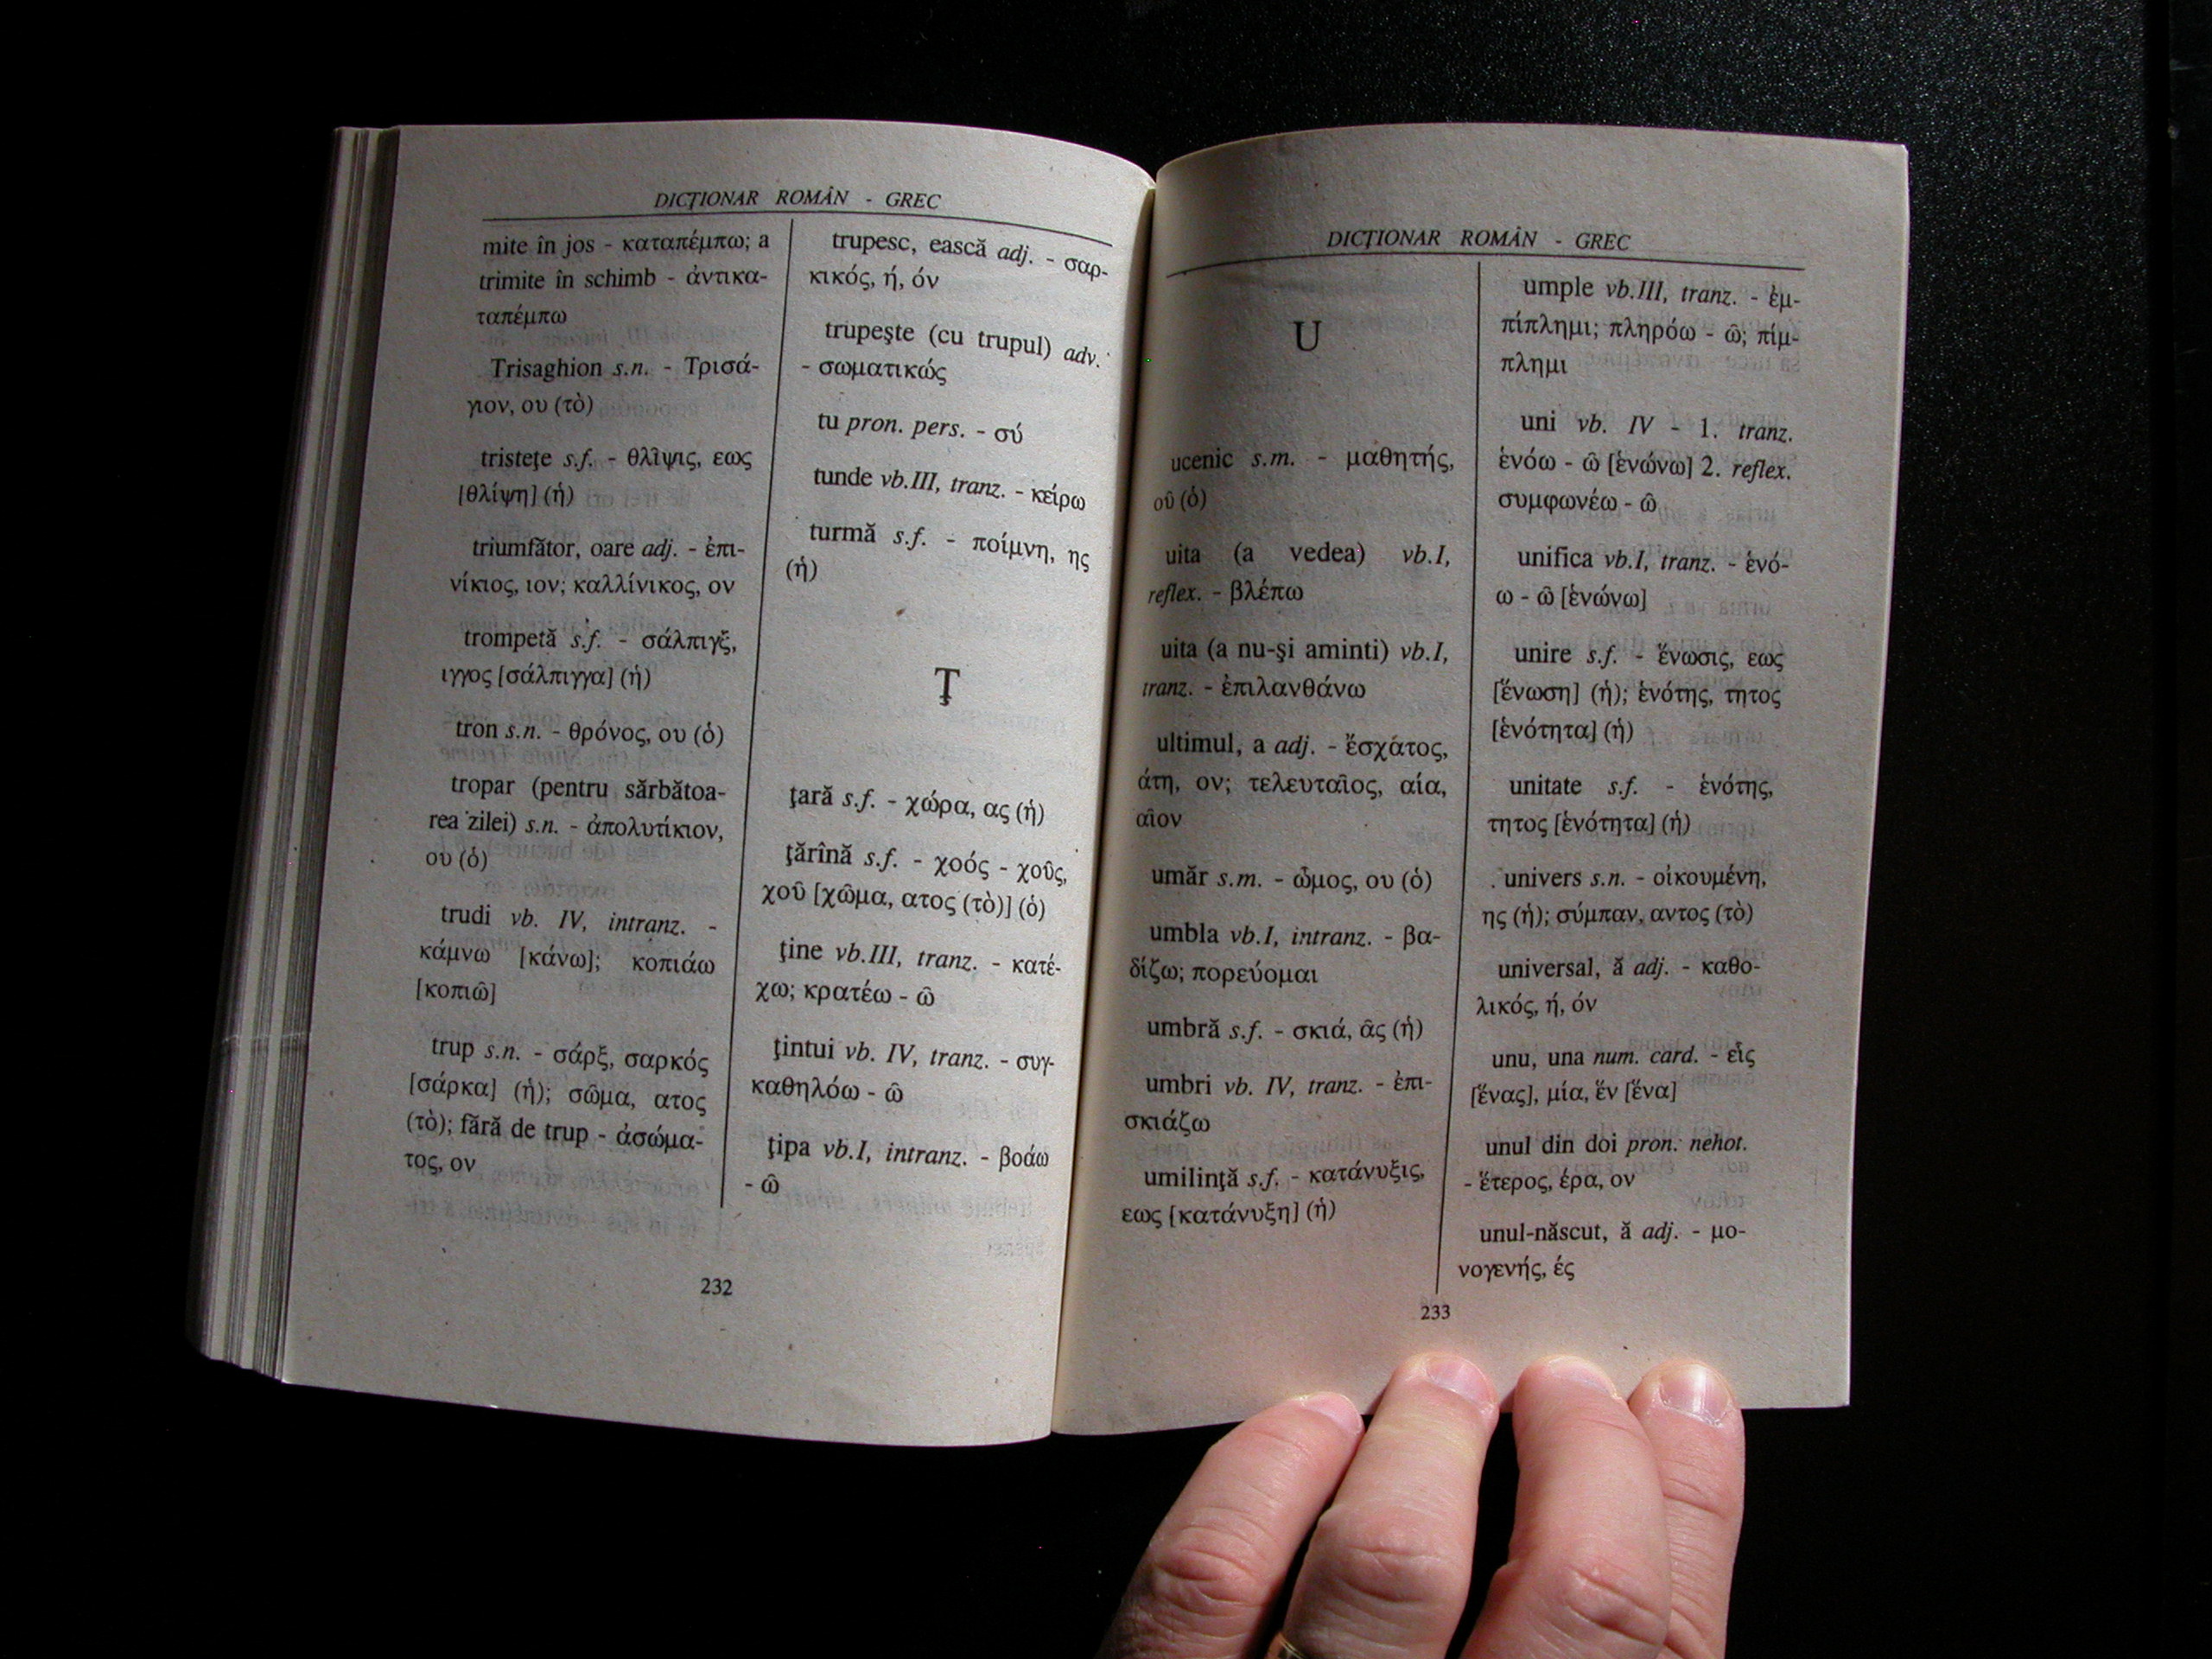 DICŢIONAR ROMÂN - GREC
mite în jos - καταπέμπω; a
trimite în schimb - ἀντικα-
ταπέμπω
Trisaghion s.n. - Τρισά-
γιον, ου (τὸ)
tristeţe s.f. - θλῖψις, εως
[θλίψη] (ἡ)
triumfător, oare adj. - ἐπι-
νίκιος, ιον; καλλίνικος, ον
trompetă s.f. - σάλπιγξ,
ιγγος [σάλπιγγα] (ἡ)
tron s.n. - θρόνος, ου (ὁ)
tropar (pentru sărbătoa-
rea zilei) s.n. - ἀπολυτίκιον,
ου (ὁ)
trudi vb. IV, intranz. -
κάμνω [κάνω]; κοπιάω
[κοπιῶ]
trup s.n. - σάρξ, σαρκός
[σάρκα] (ἡ); σῶμα, ατος
(τὸ); fără de trup - ἀσώμα-
τος, ον
trupesc, ească adj. - σαρ-
κικός, ή, όν
trupeşte (cu trupul) adv.
- σωματικώς
tu pron. pers. - σύ
tunde vb.III, tranz. - κείρω
turmă s.f. - ποίμνη, ης
(ἡ)
Ţ
ţară s.f. - χώρα, ας (ἡ)
ţărînă s.f. - χοός - χοῦς,
χοῦ [χῶμα, ατος (τὸ)] (ὁ)
ţine vb.III, tranz. - κατέ-
χω; κρατέω - ῶ
ţintui vb. IV, tranz. - συγ-
καθηλόω - ῶ
ţipa vb.I, intranz. - βοάω
- ῶ
232
DICŢIONAR ROMÂN - GREC
U
ucenic s.m. - μαθητής,
οῦ (ὁ)
uita (a vedea) vb.I,
reflex. - βλέπω
uita (a nu-şi aminti) vb.I,
tranz. - ἐπιλανθάνω
ultimul, a adj. - ἔσχάτος,
άτη, ον; τελευταῖος, αία,
αῖον
umăr s.m. - ὦμος, ου (ὁ)
umbla vb.I, intranz. - βα-
δίζω; πορεύομαι
umbră s.f. - σκιά, ᾶς (ἡ)
umbri vb. IV, tranz. - ἐπι-
σκιάζω
umilinţă s.f. - κατάνυξις,
εως [κατάνυξη] (ἡ)
umple vb.III, tranz. - ἐμ-
πίπλημι; πληρόω - ῶ; πίμ-
πλημι
uni vb. IV - 1. tranz.
ἑνόω - ῶ [ἑνώνω] 2. reflex.
συμφωνέω - ῶ
unifica vb.I, tranz. - ἑνό-
ω - ῶ [ἑνώνω]
unire s.f. - ἕνωσις, εως
[ἕνωση] (ἡ); ἑνότης, τητος
[ἑνότητα] (ἡ)
unitate s.f. - ἑνότης,
τητος [ἑνότητα] (ἡ)
univers s.n. - οἰκουμένη,
ης (ἡ); σύμπαν, αντος (τὸ)
universal, ă adj. - καθο-
λικός, ή, όν
unu, una num. card. - εἷς
[ἕνας], μία, ἕν [ἕνα]
unul din doi pron. nehot.
- ἕτερος, έρα, ον
unul-născut, ă adj. - μο-
νογενής, ές
233